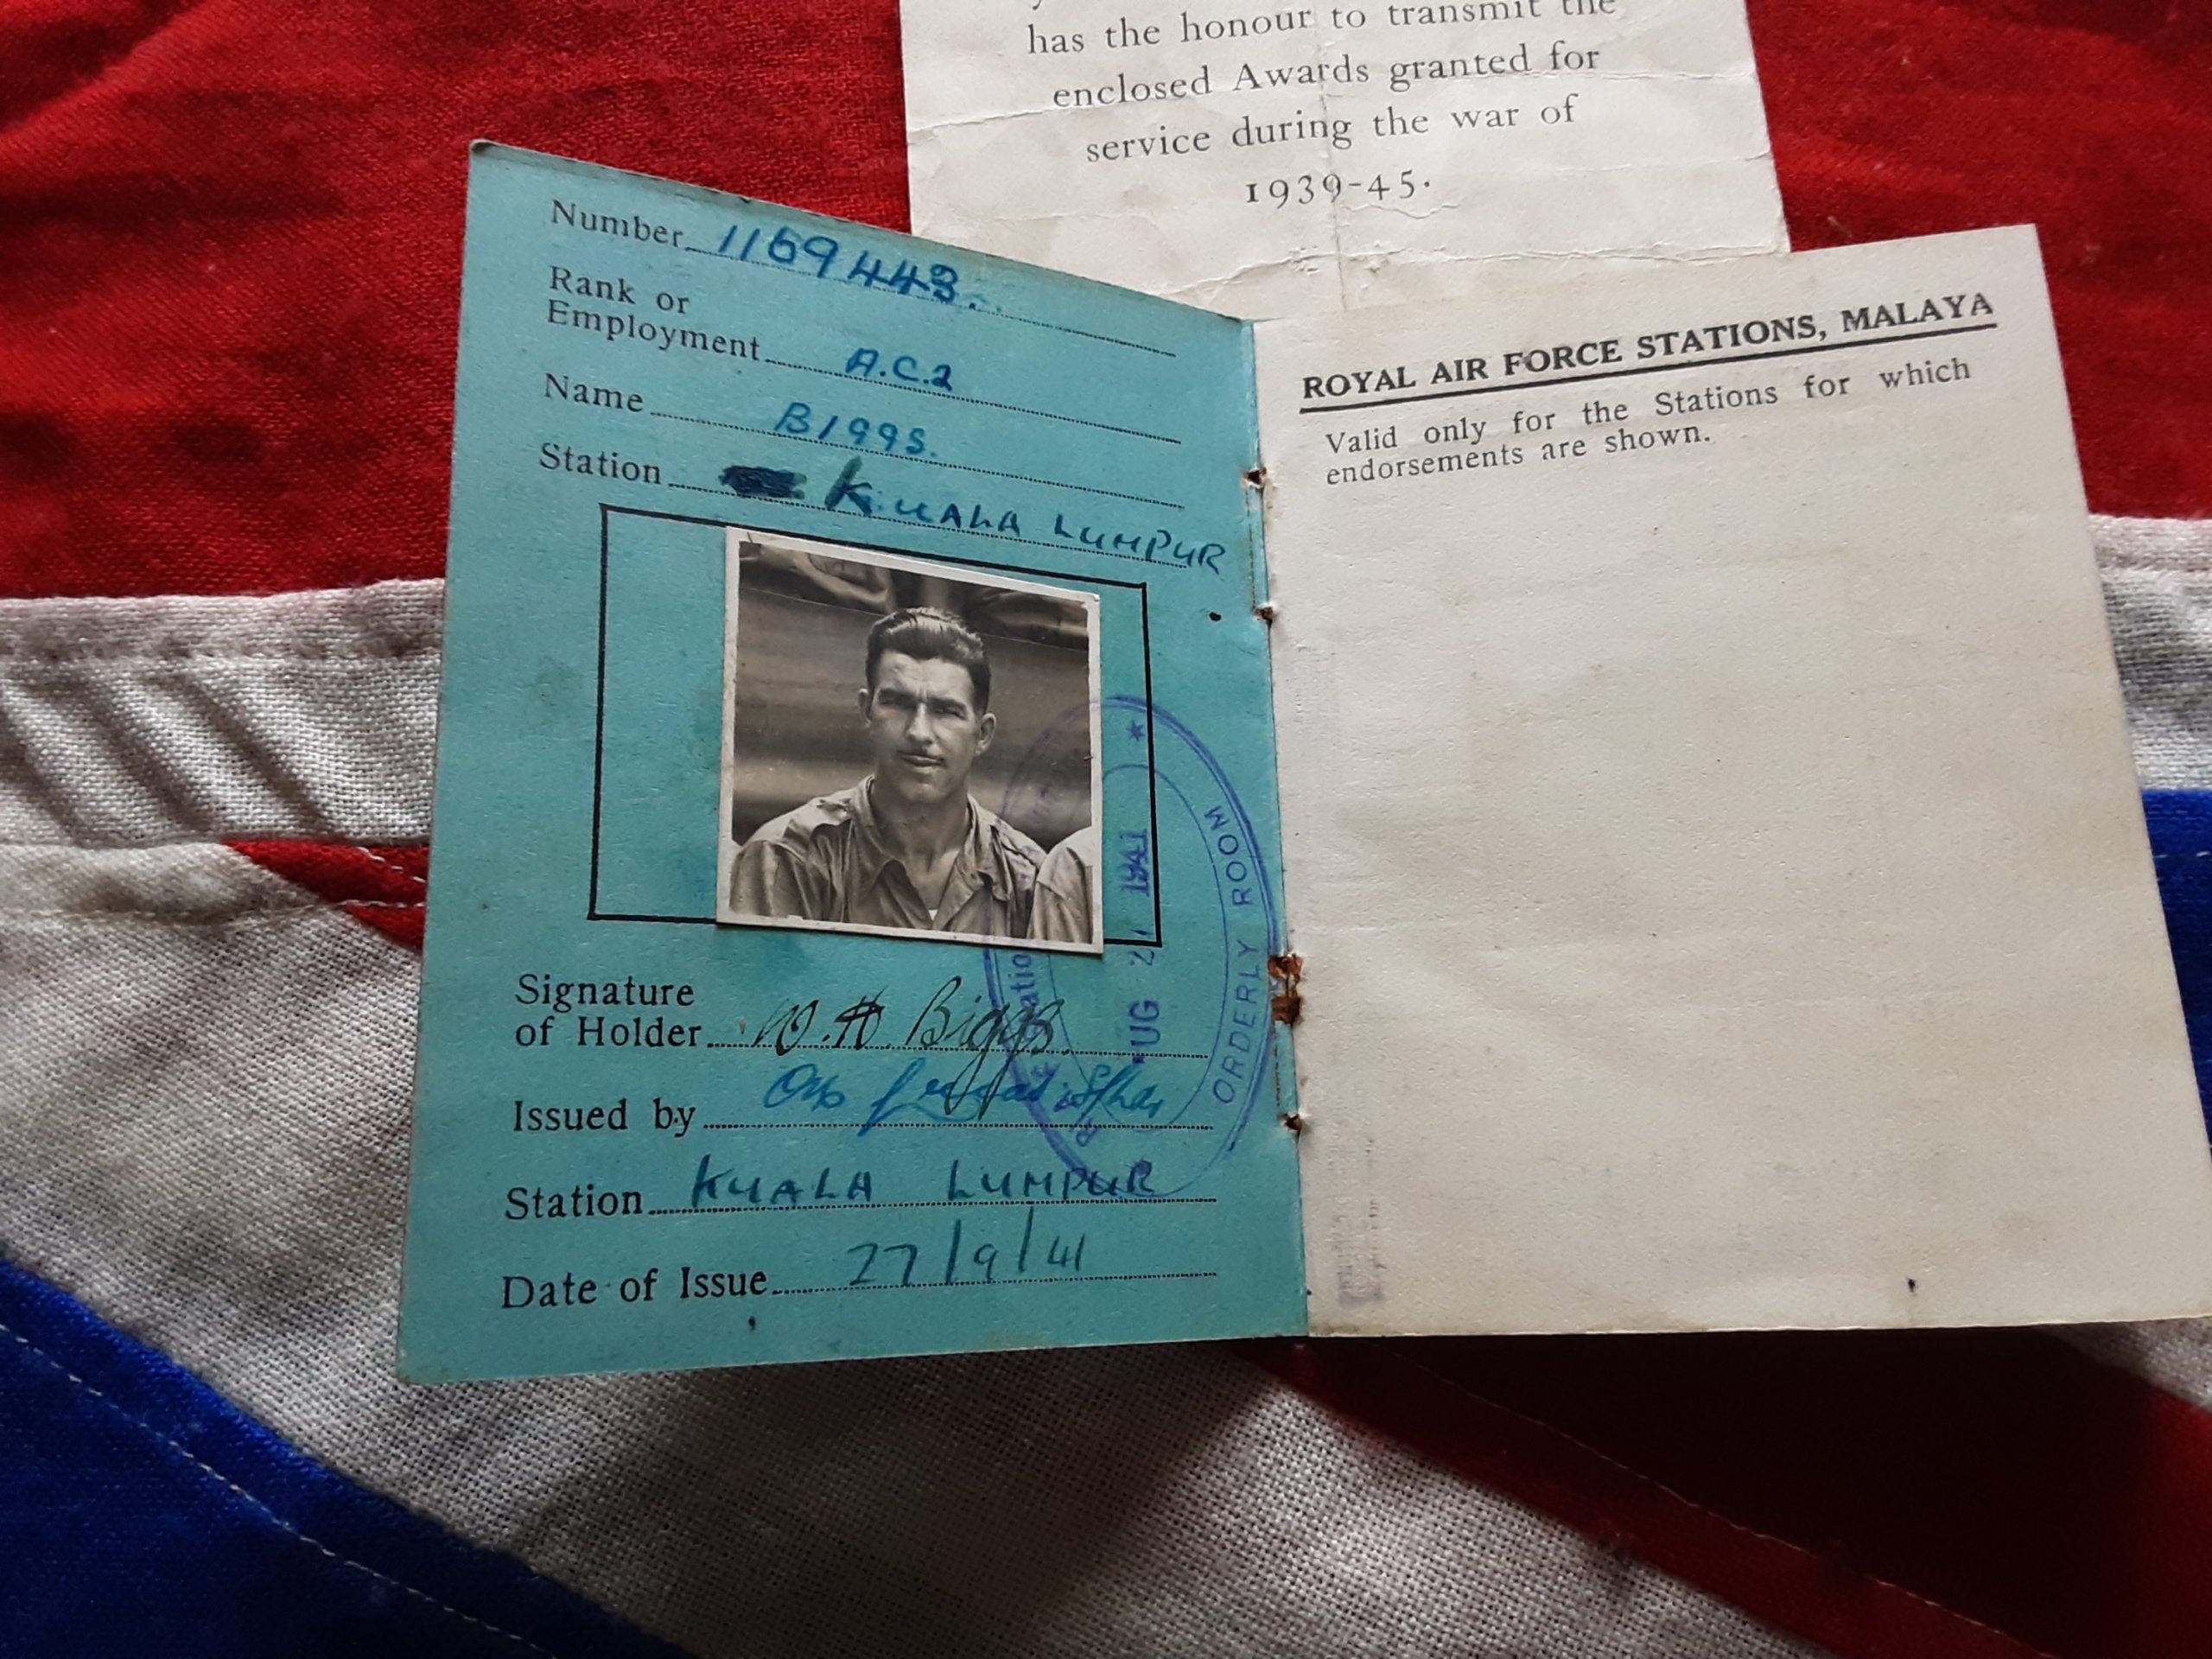 has the honour to transmit the
enclosed Awards granted for
service during the war of
1939-45.
Number 1169443.
Rank or
Employment A.C.2
Name BIGGS.
Station KUALA LUMPUR
Signature
of Holder W.H. Biggs.
Issued by
Station KUALA LUMPUR
Date of Issue 27/9/41
ORDERLY ROOM
UG 2 1941
ROYAL AIR FORCE STATIONS, MALAYA
Valid only for the Stations for which
endorsements are shown.